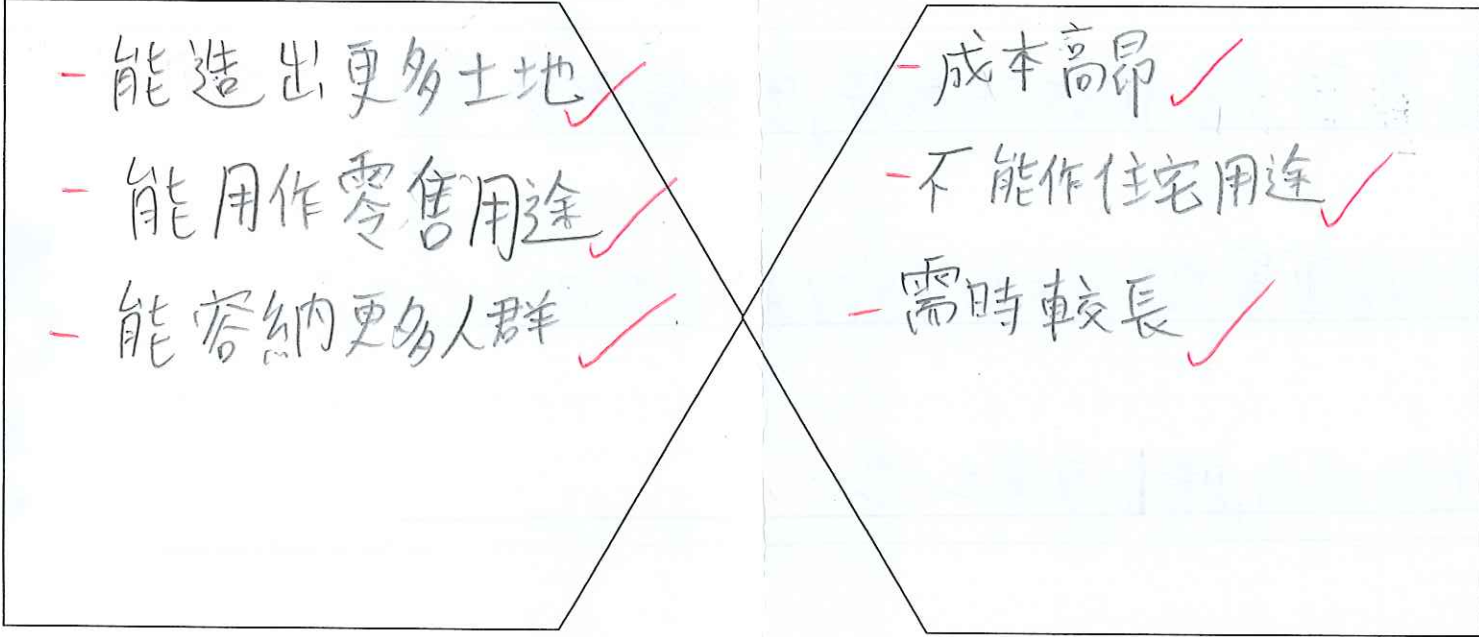 - 能造出更多土地
- 能用作零售用途
- 能容納更多人群
- 成本高昂
- 不能作住宅用途
- 需時較長